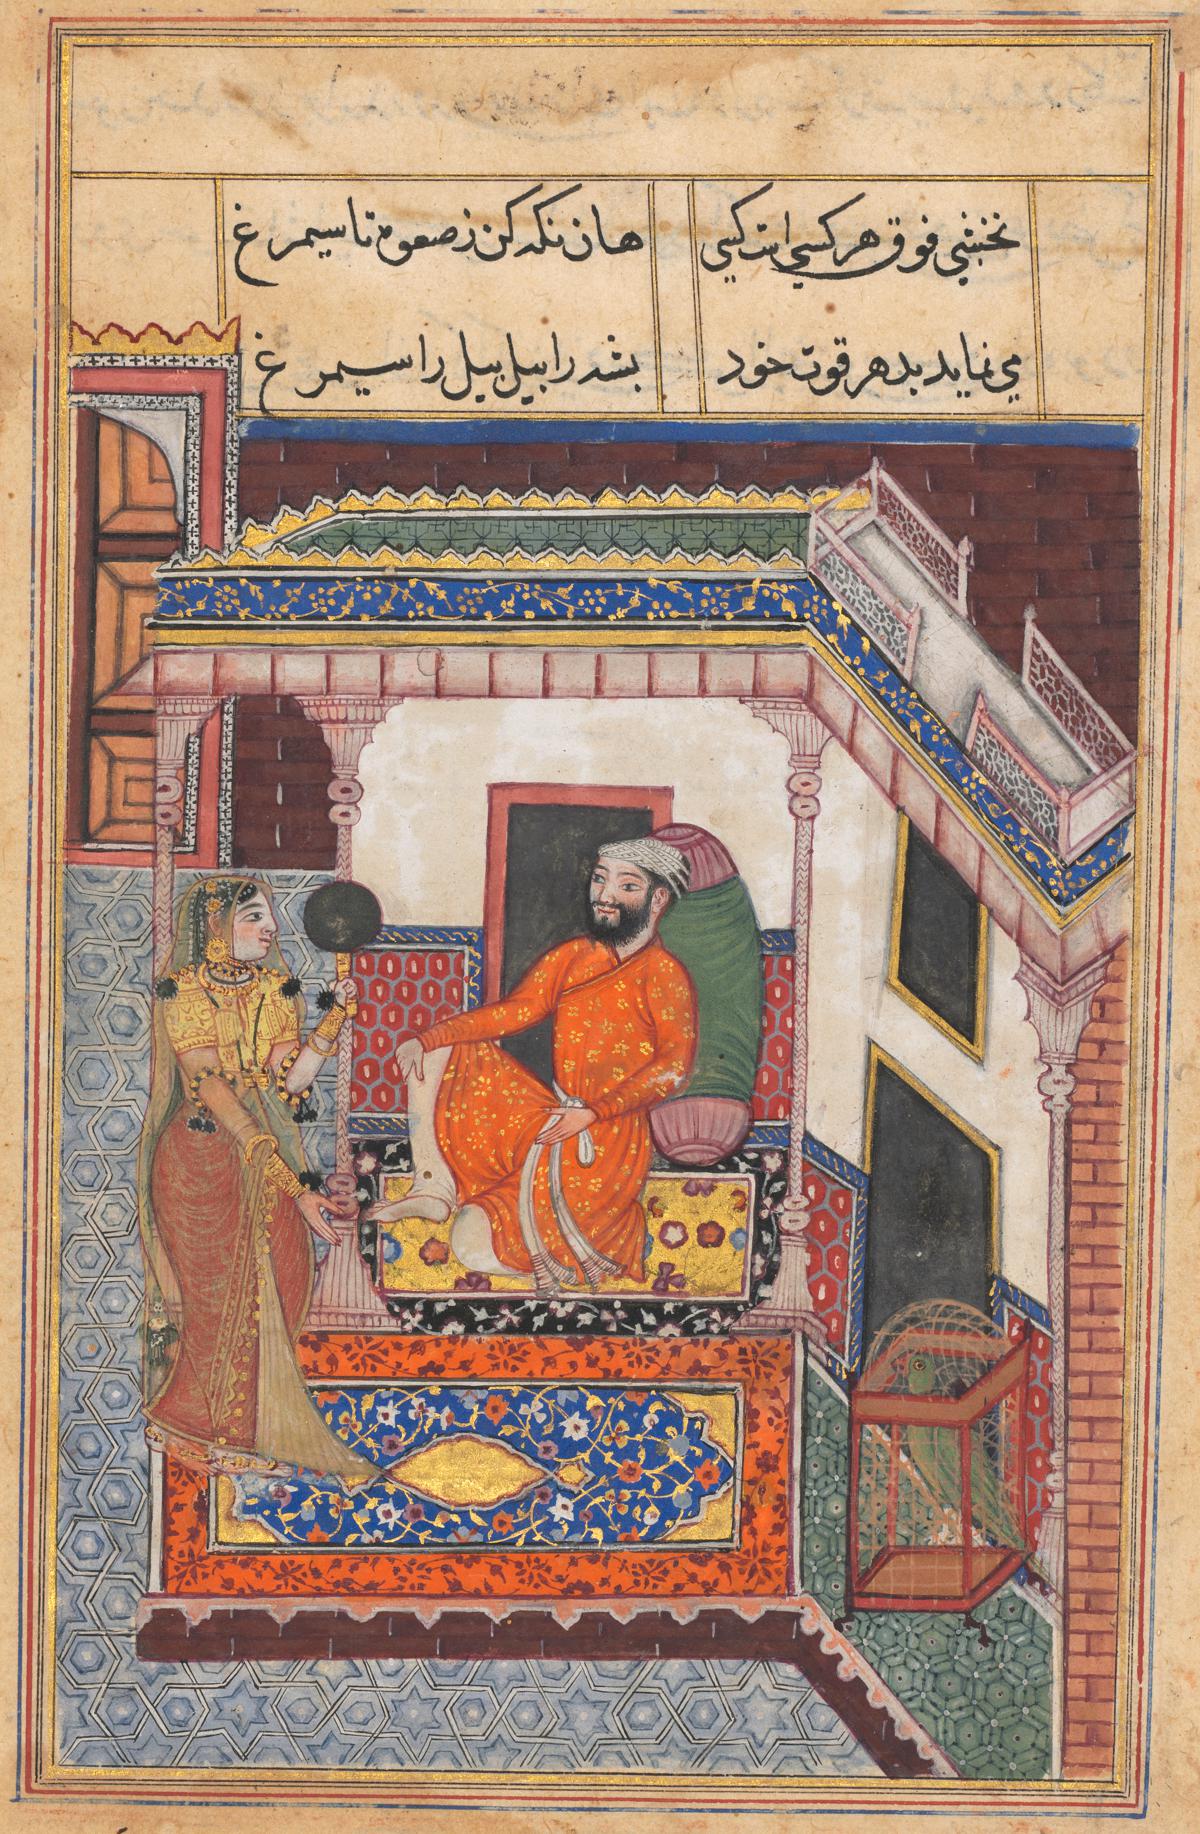 نخشبي فوق هر کسي است کسي هان نکه کن ز صعوه تا سيمرغ
مي نمايد بدهر قوت خود بشه را بيل بيل را سيمرغ